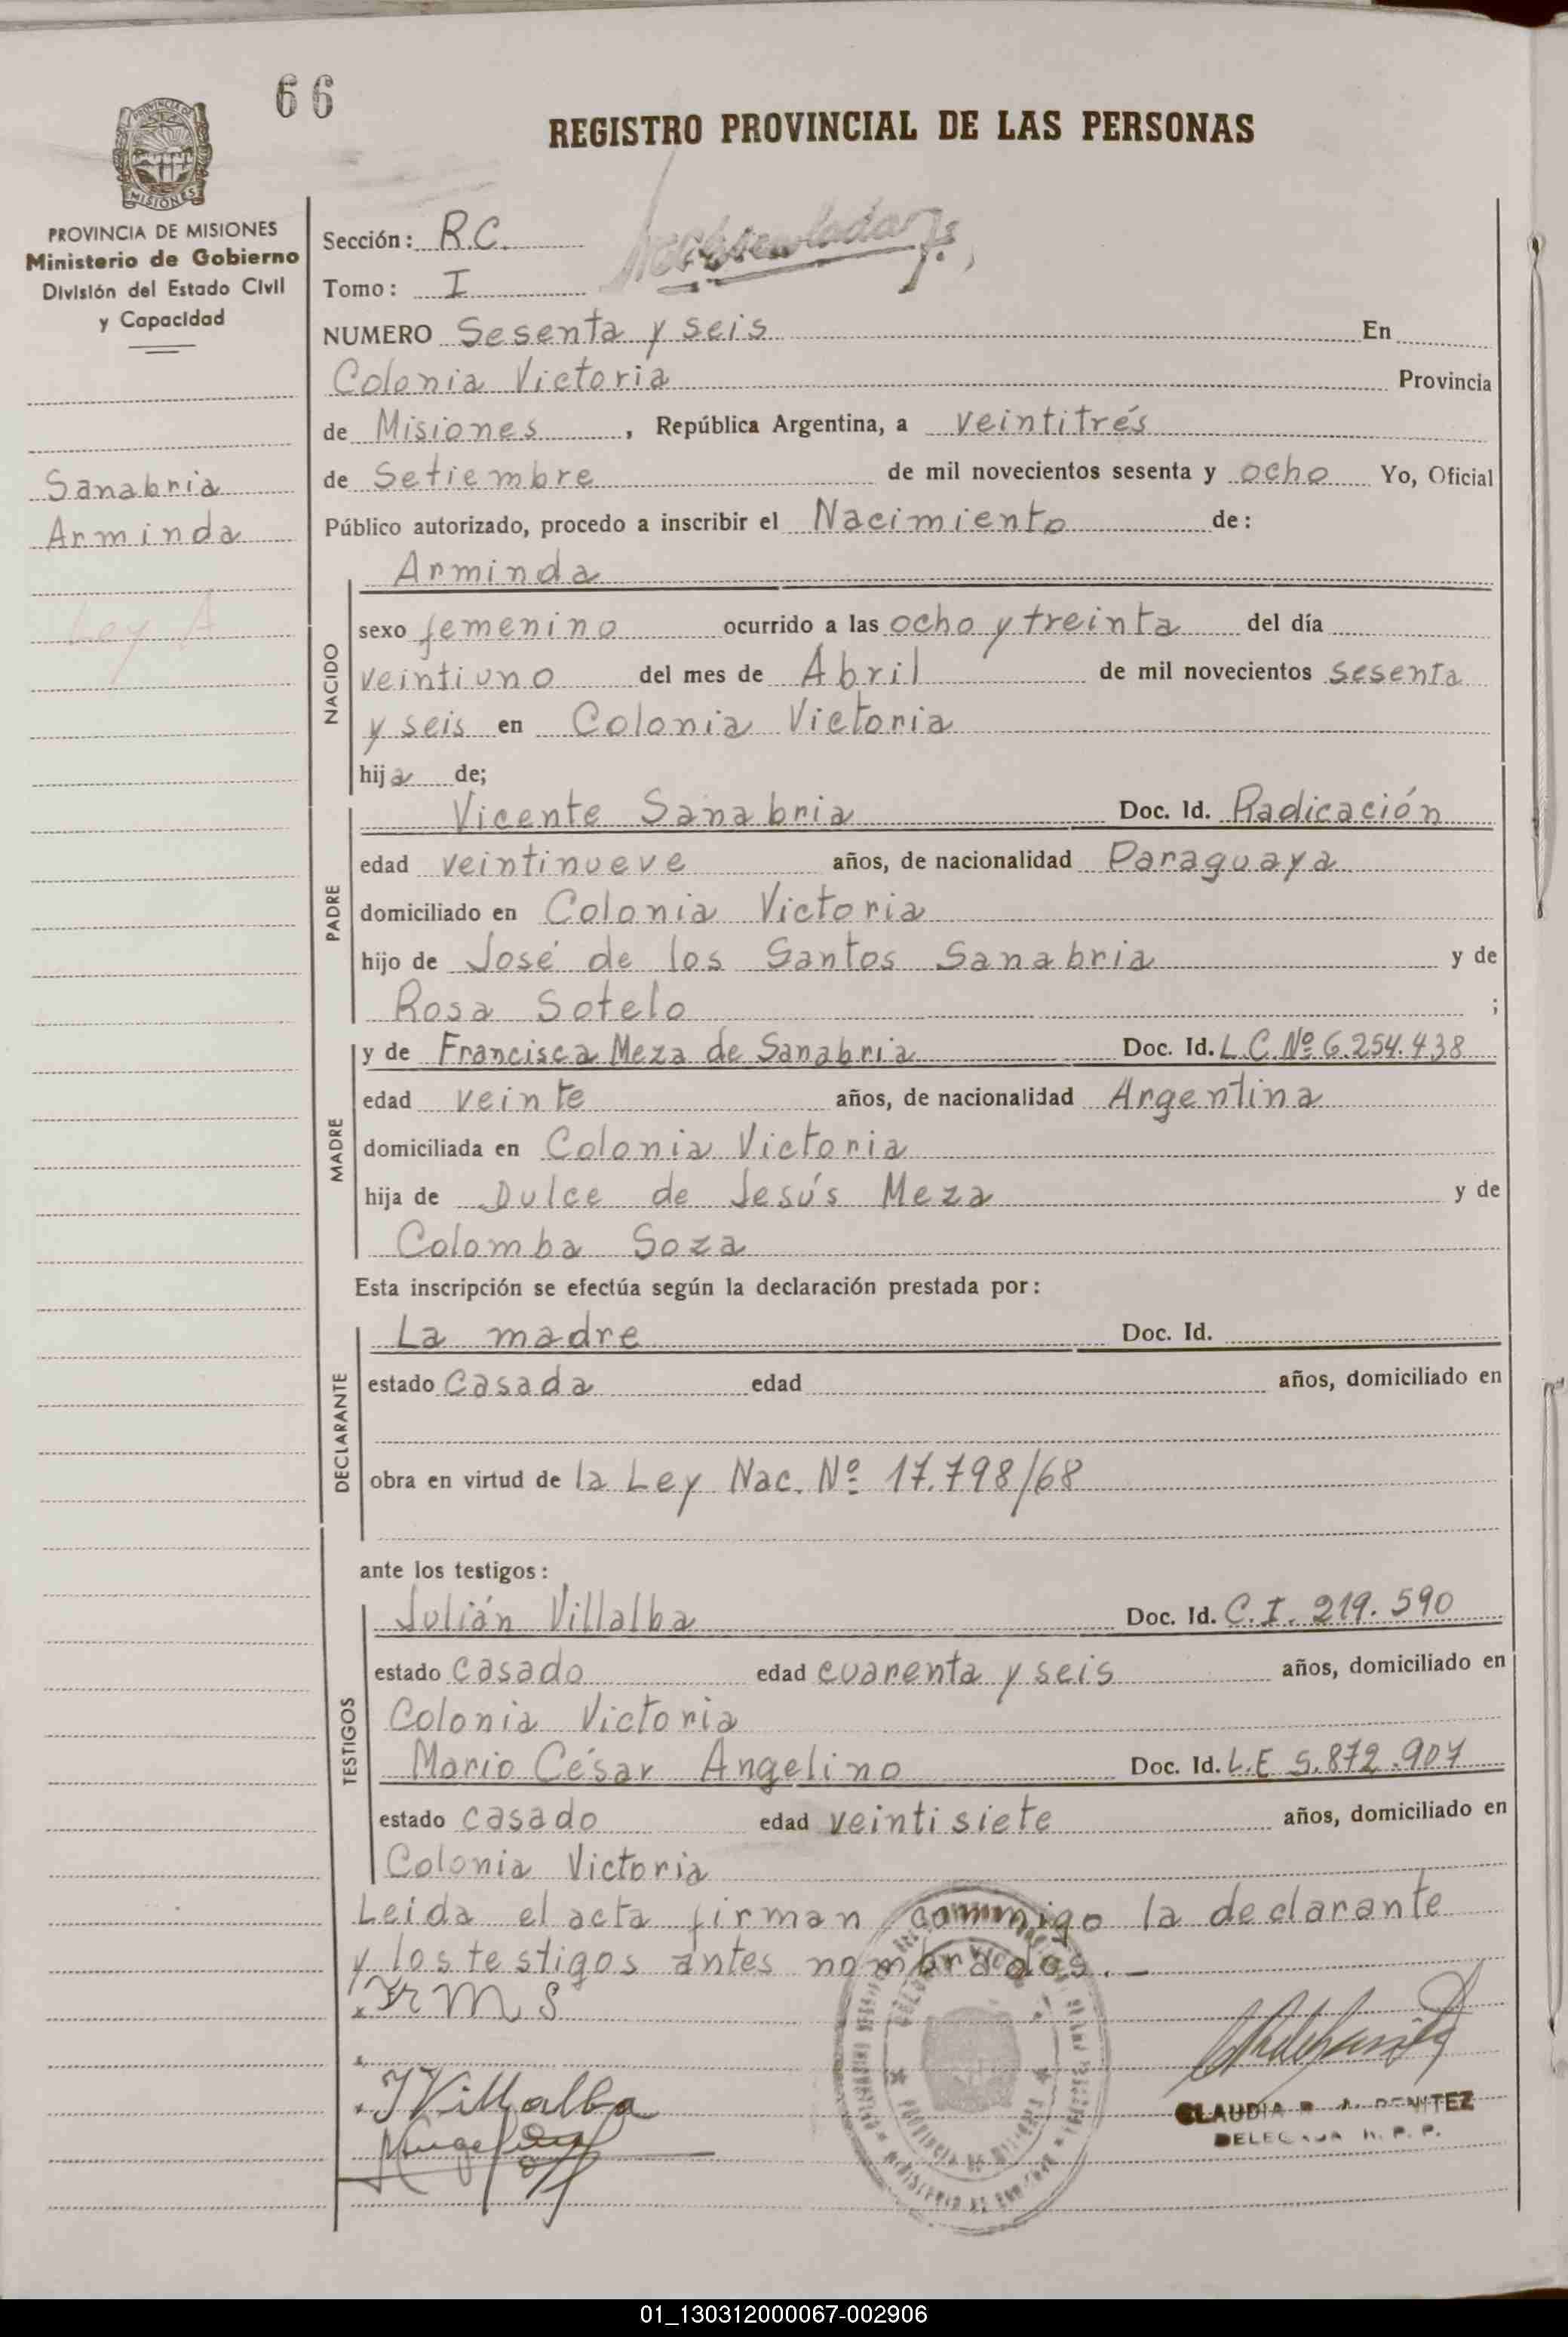 66
REGISTRO PROVINCIAL DE LAS PERSONAS
PROVINCIA DE MISIONES
Ministerio de Gobierno
División del Estado Civil
y Capacidad
Sanabria
Arminda
Ley A
Sección: R.C.
Tomo: I
NUMERO Sesenta y seis En
Colonia Victoria Provincia
de Misiones, República Argentina, a veintitrés
de Setiembre de mil novecientos sesenta y ocho Yo, Oficial
Público autorizado, procedo a inscribir el Nacimiento de:
NACIDO
Arminda
sexo femenino ocurrido a las ocho y treinta del día
veintiuno del mes de Abril de mil novecientos sesenta
y seis en Colonia Victoria
hija de;
PADRE
Vicente Sanabria Doc. Id. Radicación
edad veintinueve años, de nacionalidad Paraguaya
domiciliado en Colonia Victoria
hijo de José de los Santos Sanabria y de
Rosa Sotelo ;
MADRE
y de Francisca Meza de Sanabria Doc. Id. L.C.Nº 6.254.438
edad veinte años, de nacionalidad Argentina
domiciliada en Colonia Victoria
hija de Dulce de Jesús Meza y de
Colomba Soza
Esta inscripción se efectúa según la declaración prestada por:
DECLARANTE
La madre Doc. Id.
estado Casada edad años, domiciliado en
obra en virtud de la Ley Nac. Nº 17.798/68
ante los testigos:
TESTIGOS
Julián Villalba Doc. Id. C.I. 219.590
estado casado edad cuarenta y seis años, domiciliado en
Colonia Victoria
Mario César Angelino Doc. Id. L.E 5.872.907
estado casado edad veintisiete años, domiciliado en
Colonia Victoria
Leida el acta firman conmigo la declarante
y los testigos antes nombrados.—
Fr M S
JVillalba
CLAUDIA BENITEZ
DELEGADA R. P. P.
01_130312000067-002906